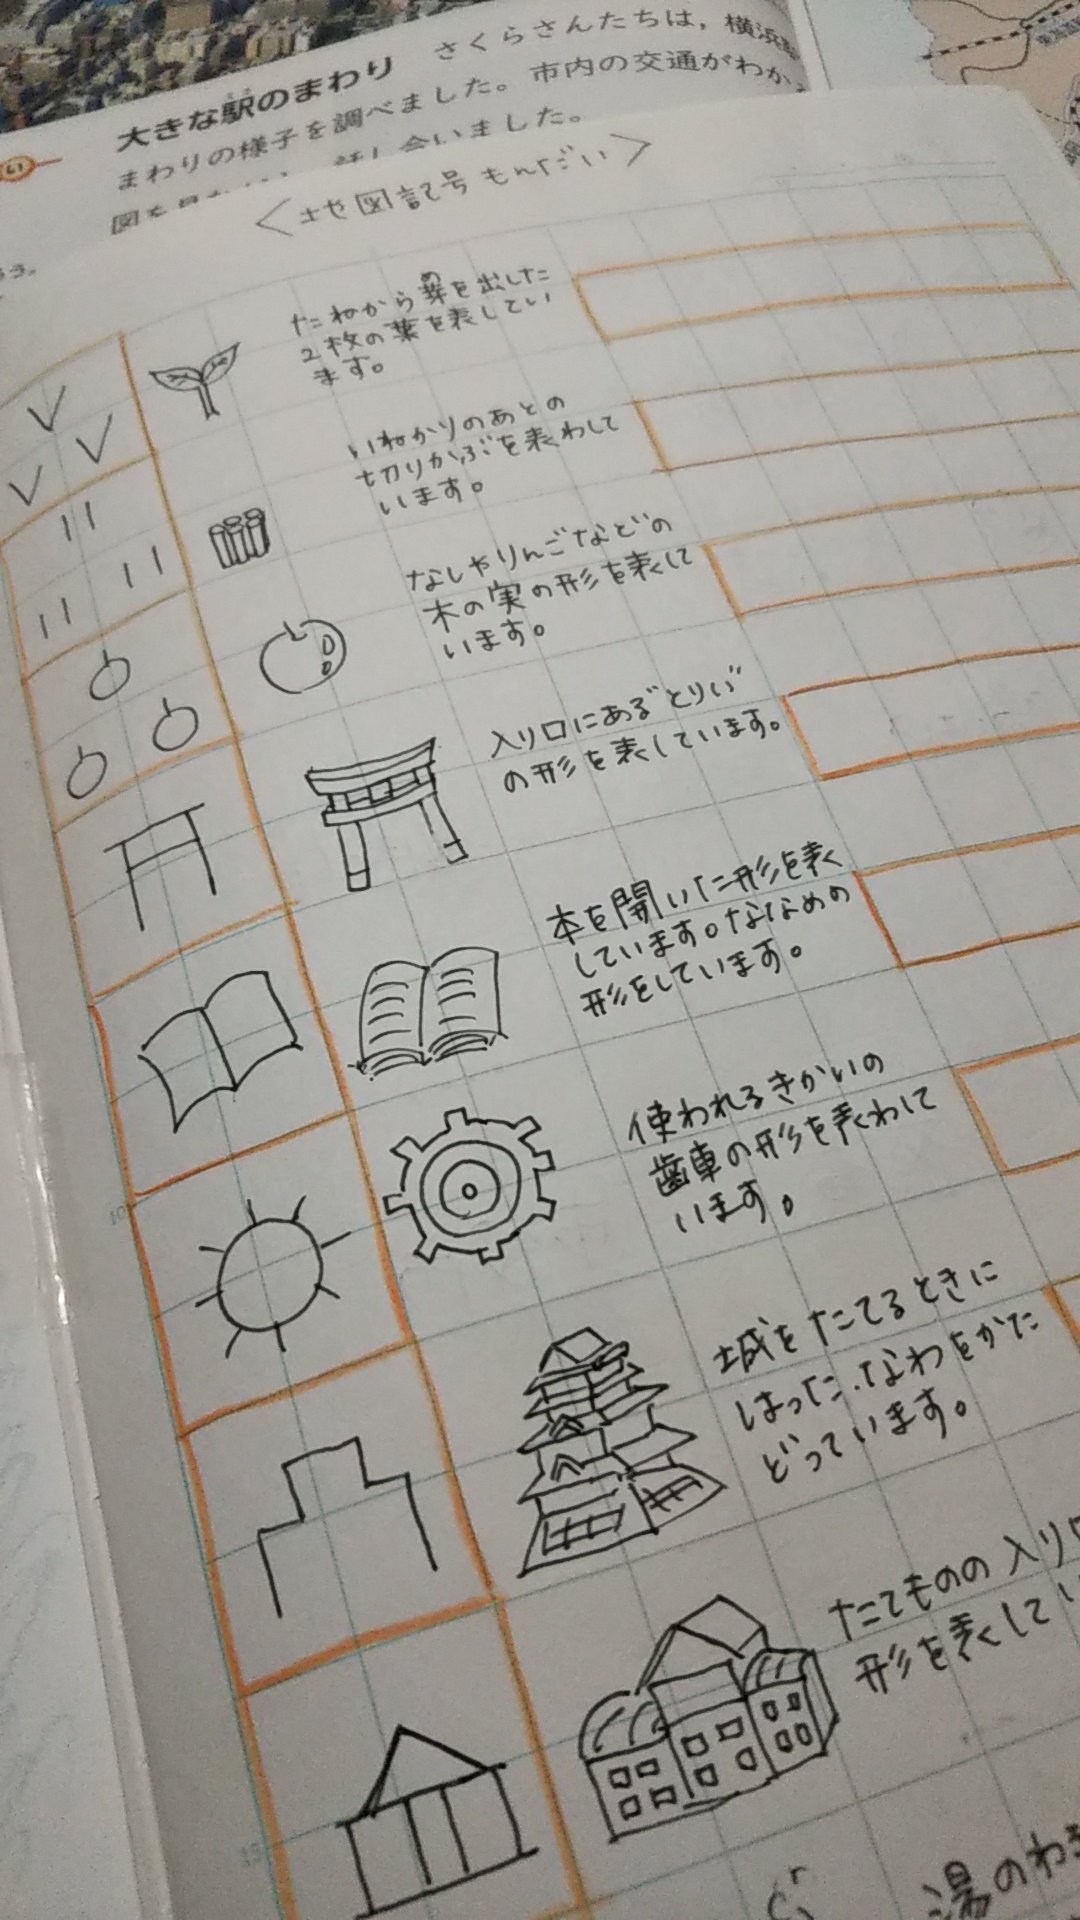 大きな駅のまわり さくらさんたちは，横浜
まわりの様子を調べました。市内の交通がわか
話し合いました。
＜地図記号もんだい＞
たねから芽を出した
2枚の葉を表してい
ます。
いねかりのあとの
切りかぶを表わして
います。
なしやりんごなどの
木の実の形を表くして
います。
入り口にあるとりい
の形を表くしています。
本を開いた形を表く
しています。ななめの
形をしています。
使われるきかいの
歯車の形を表くわして
います。
城をたてるときに
はった、なわをかた
どっています。
たてものの入り口
形を表くして
湯のわ
10
15